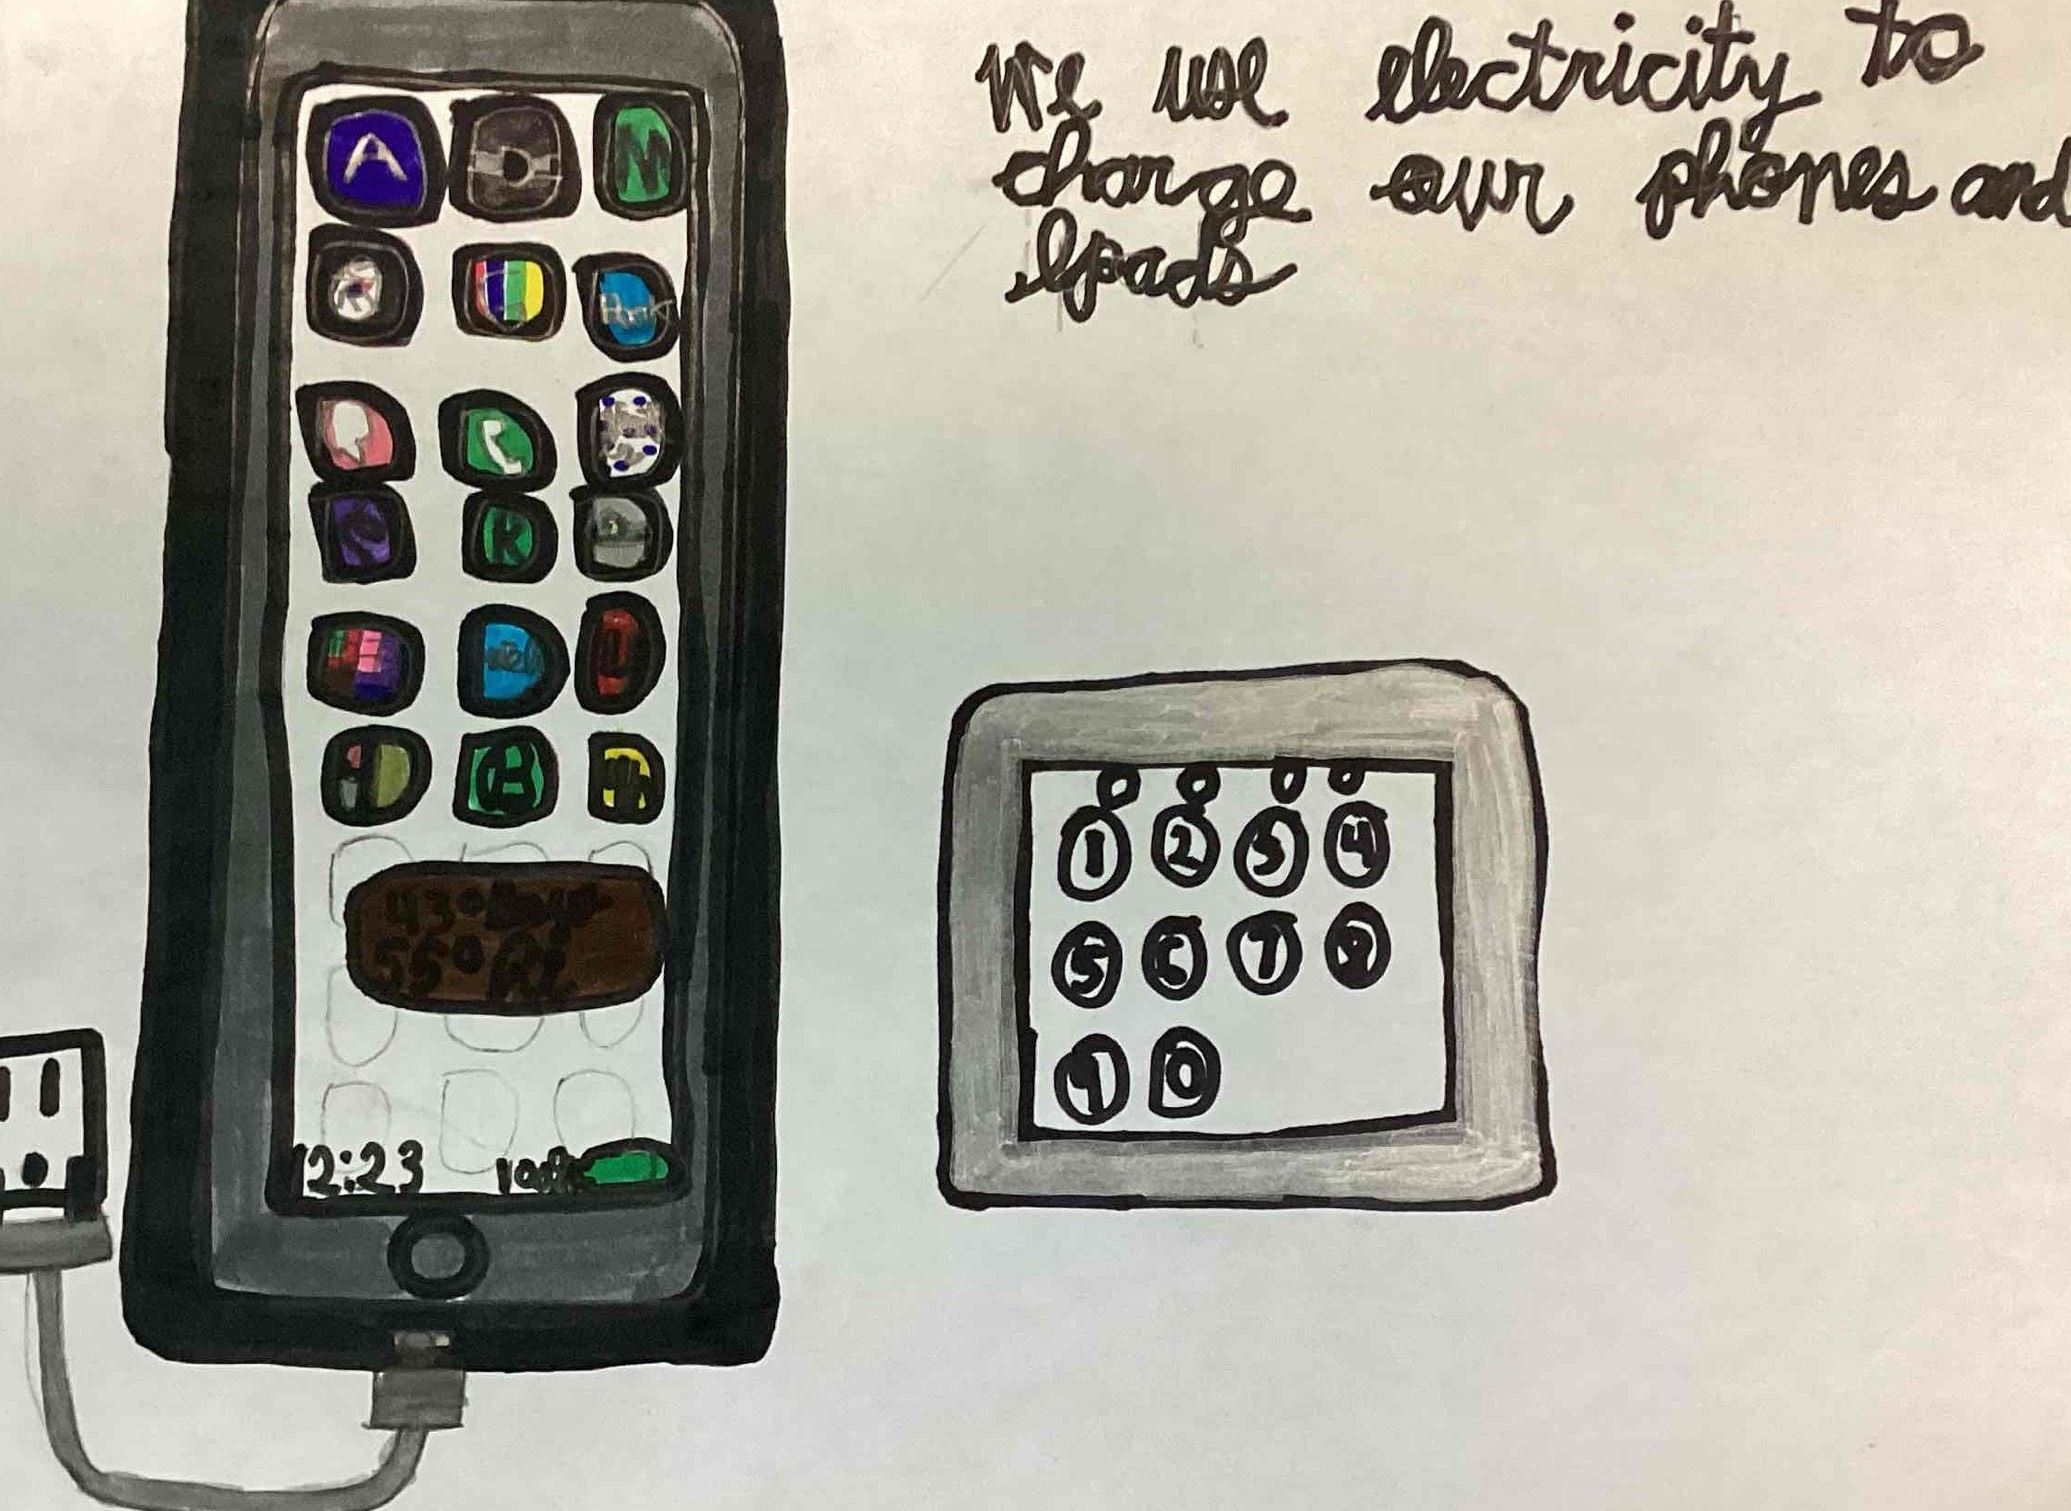 We use electricity to
charge our phones and
Ipads
A
M
K
43°
55°
12:23 100%
1 2 3 4
5 6 7
9 0